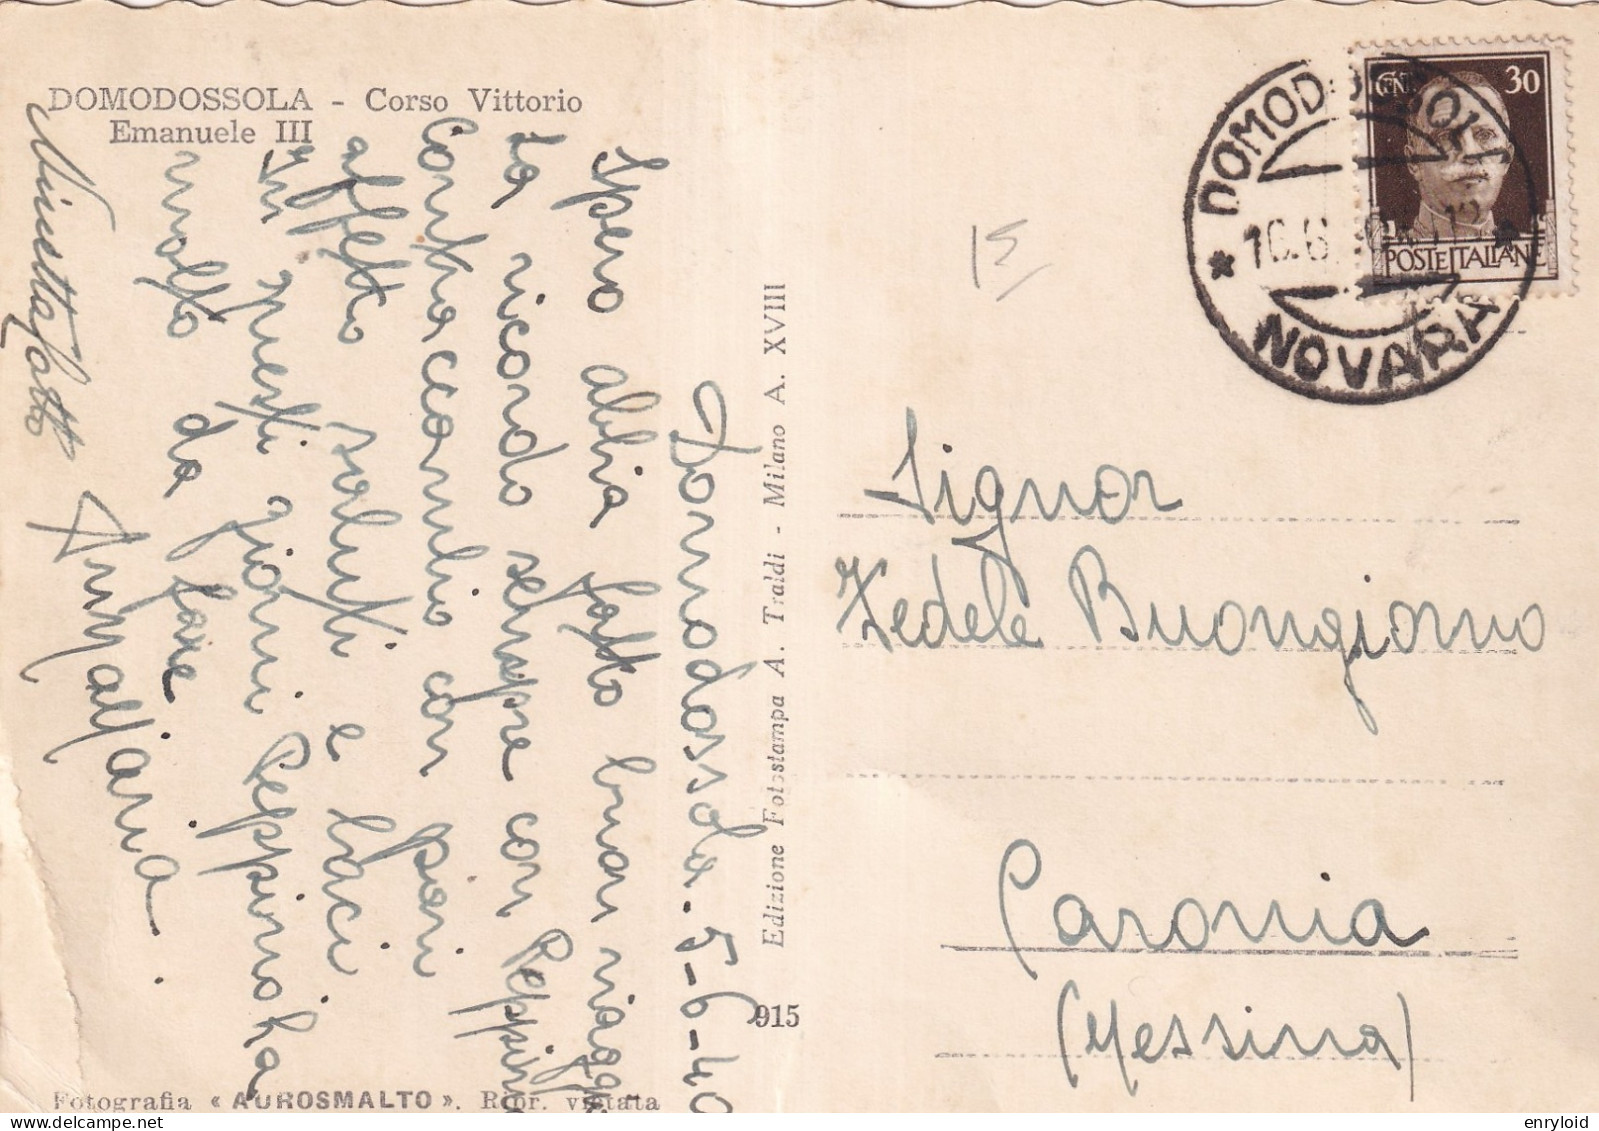 DOMODOSSOLA - Corso Vittorio
Emanuele III
Domodossola. 5-6-40
Spero abbia fatto buon viaggio
La ricordo sempre con Peppino
Contraccambio con
affetto saluti e baci
In questi giorni Peppino ha
molto da fare
Annamaria.
Edizione Fotostampa A. Traldi - Milano A. XVIII
915
Fotografia « AUROSMALTO ». Ripr. vietata
15
CENT. 30
POSTE ITALIANE
DOMODOSSOLA
NOVARA
Signor
Fedele Buongiorno
Caronia
(Messina)
delcampe.net
enryloid